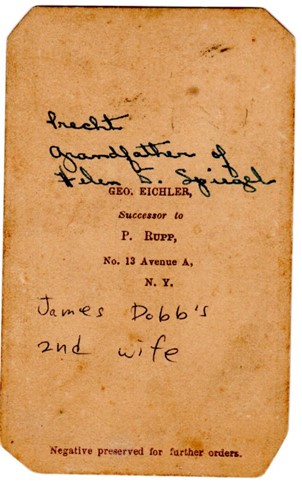 Grandfather of
Helen S. Spiegel
GEO. EICHLER,
Successor to
P. RUPP,
No. 13 Avenue A,
N. Y.
James Dobb's
2nd wife
Negative preserved for further orders.